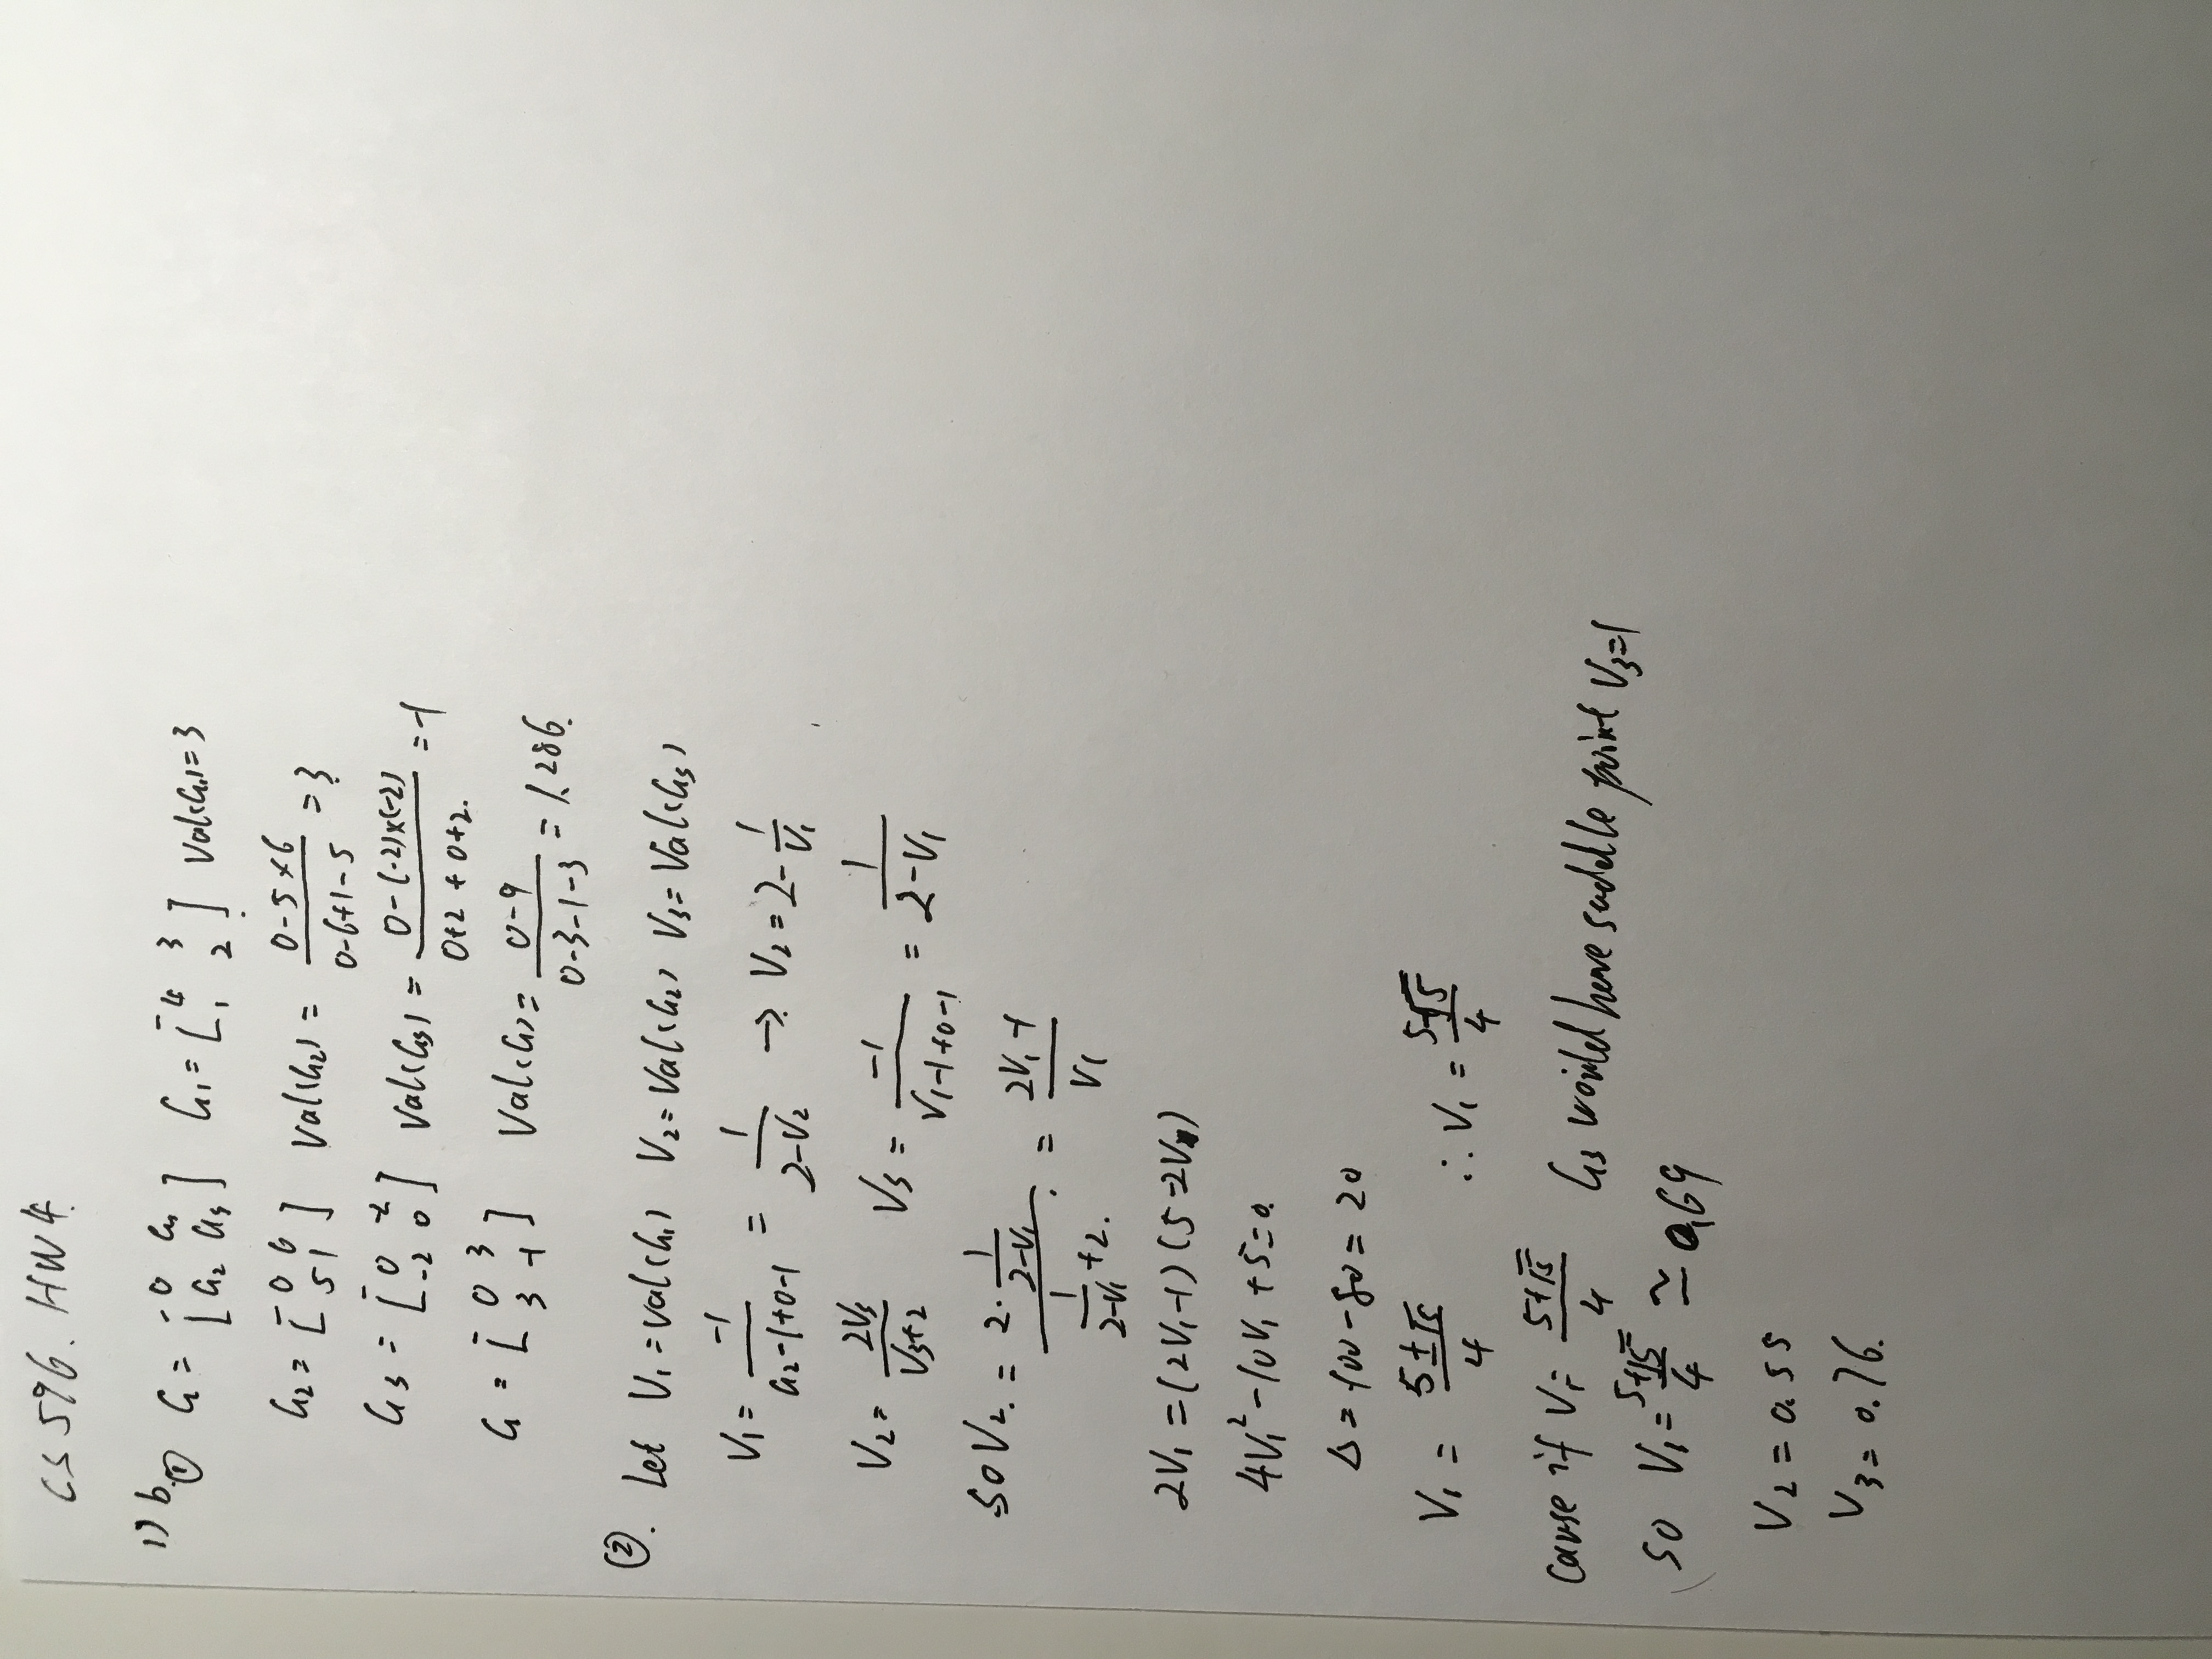 CS 596. HW4.
1) b. ① G = [0 G1; G2 G3] G1 = [4 3; 1 2] Val(G1) = 3
G2 = [0 6; 5 1] Val(G2) = (0-5×6)/(0-6+1-5) = 3
G3 = [0 -2; -2 0] Val(G3) = (0-(-2)×(-2))/(0+2+0+2.) = -1
G = [0 3; 3 -1] Val(G) = (0-9)/(0-3-1-3) = 1.286.
②. Let V1 = Val(G1) V2 = Val(G2) V3 = Val(G3)
V1 = -1/(G2-1+0-1) = 1/(2-V2) → V2 = 2-1/V1
V2 = 2V3/(V3+2) V3 = -1/(V1-1+0-1) = 1/(2-V1)
so V2. = (2·1/(2-V1))/(1/(2-V1)+2.) = (2V1-1)/V1
2V1 = (2V1-1)(5-2V1)
4V1²-10V1+5=0.
Δ = 100-80 = 20
V1 = (5±√5)/4 ∴ V1 = (5-√5)/4
cause if V1 = (5+√5)/4 G3 would have saddle point V3=1
so V1 = (5+√5)/4 ≃ 0.69
V2 = 0.55
V3 = 0.76.